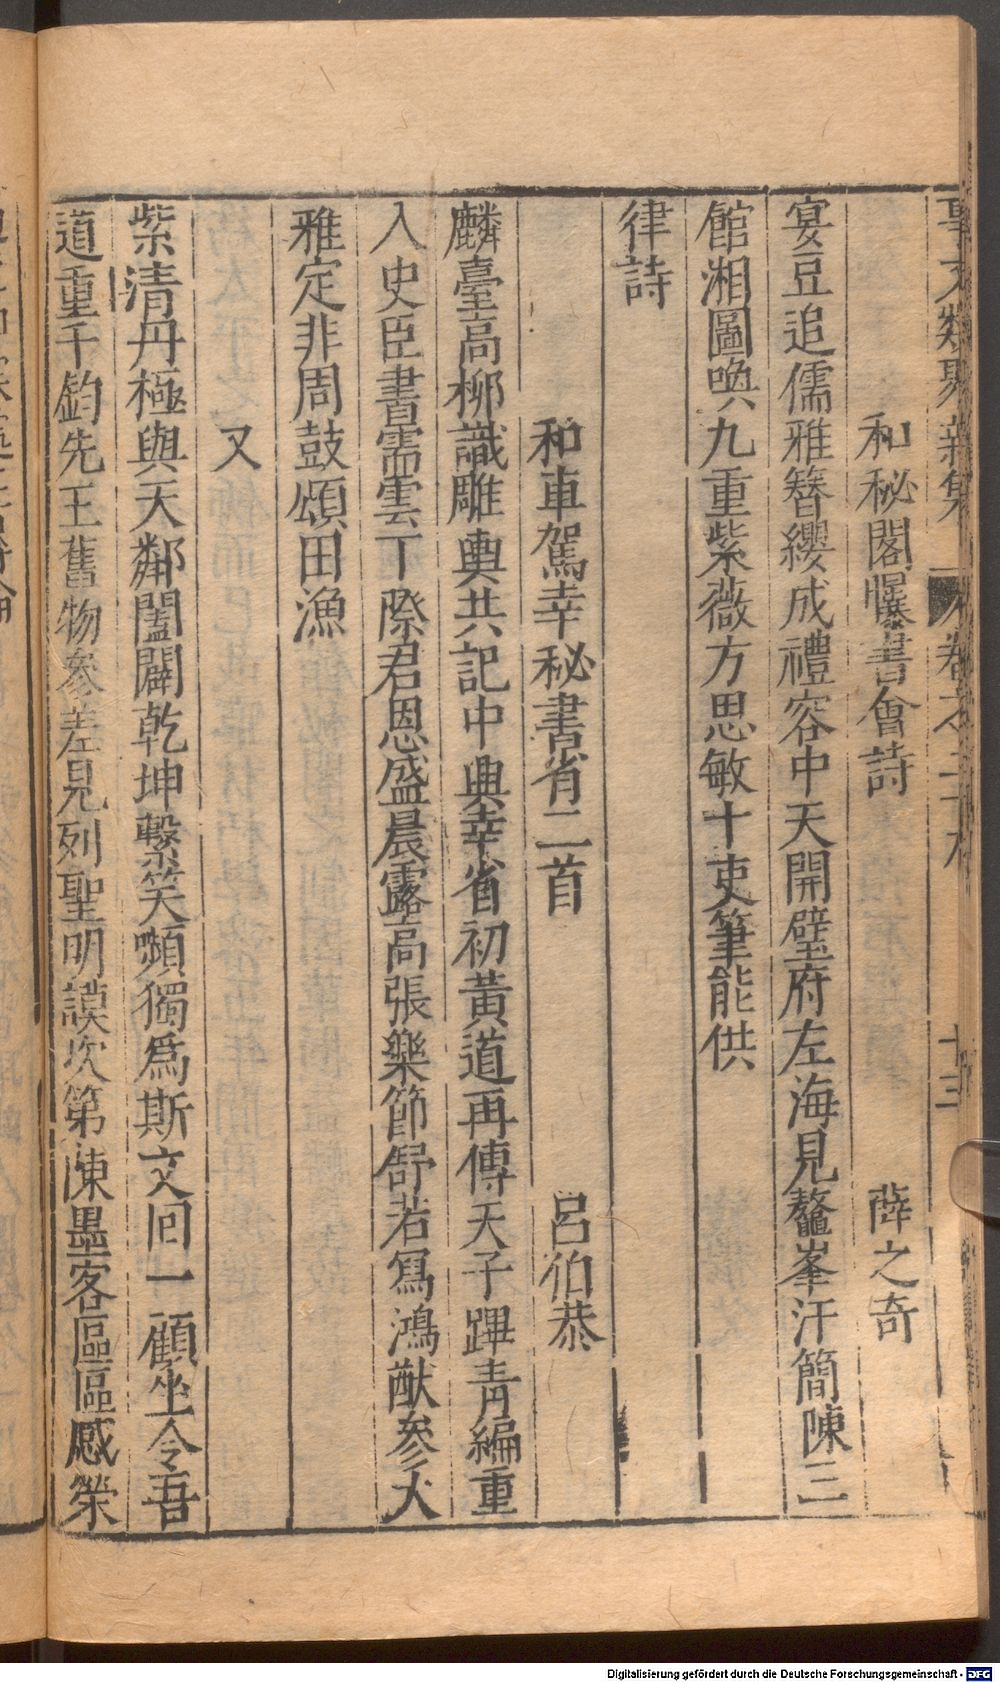 事文類聚新集 卷之二十八 十三
和秘閣曝書會詩 薛之奇
宴豆追儒雅簪纓成禮容中天開璧府左海見鼇峯汗簡陳三
館湘圖喚九重紫薇方思敏十吏筆能供
律詩
和車駕幸秘書省二首 呂伯恭
麟臺高柳識雕輿共記中興幸省初黃道再傳天子蹕青編重
入史臣書需雲下際君恩盛晨露高張樂節舒若寫鴻猷參大
雅定非周鼓頌田漁
又
紫清丹極與天鄰闔闢乾坤繫笑嚬獨爲斯文回一顧坐令吾
道重千鈞先王舊物參差見列聖明謨次第陳墨客區區感榮
Digitalisierung gefördert durch die Deutsche Forschungsgemeinschaft - DFG